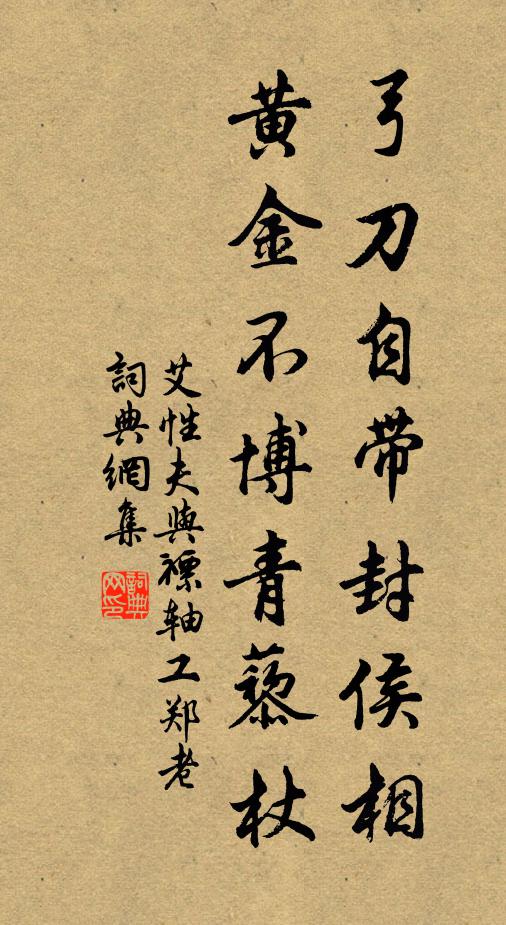 弓刀自带封侯相
黄金不博青藜杖
艾性夫與褾轴工郑老
詞典網集
詞典网印